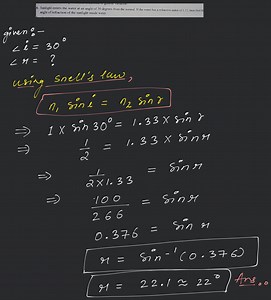 Sunlight enters the water at an angle of 30 degrees from the normal. If the water has a refractive index of 1.33, what is the
angle of refraction of the sunlight inside water
given:-
∠i = 30°
∠r = ?
using snell's law,
n₁ sin i = n₂ sin r
⇒ 1 × sin 30° = 1.33 × sin r
⇒ 1/2 = 1.33 × sin r
⇒ 1/2×1.33 = sin r
⇒ 100/266 = sin r
0.376 = sin r
r = sin⁻¹ (0.376)
r = 22.1 ≈ 22° Ans..